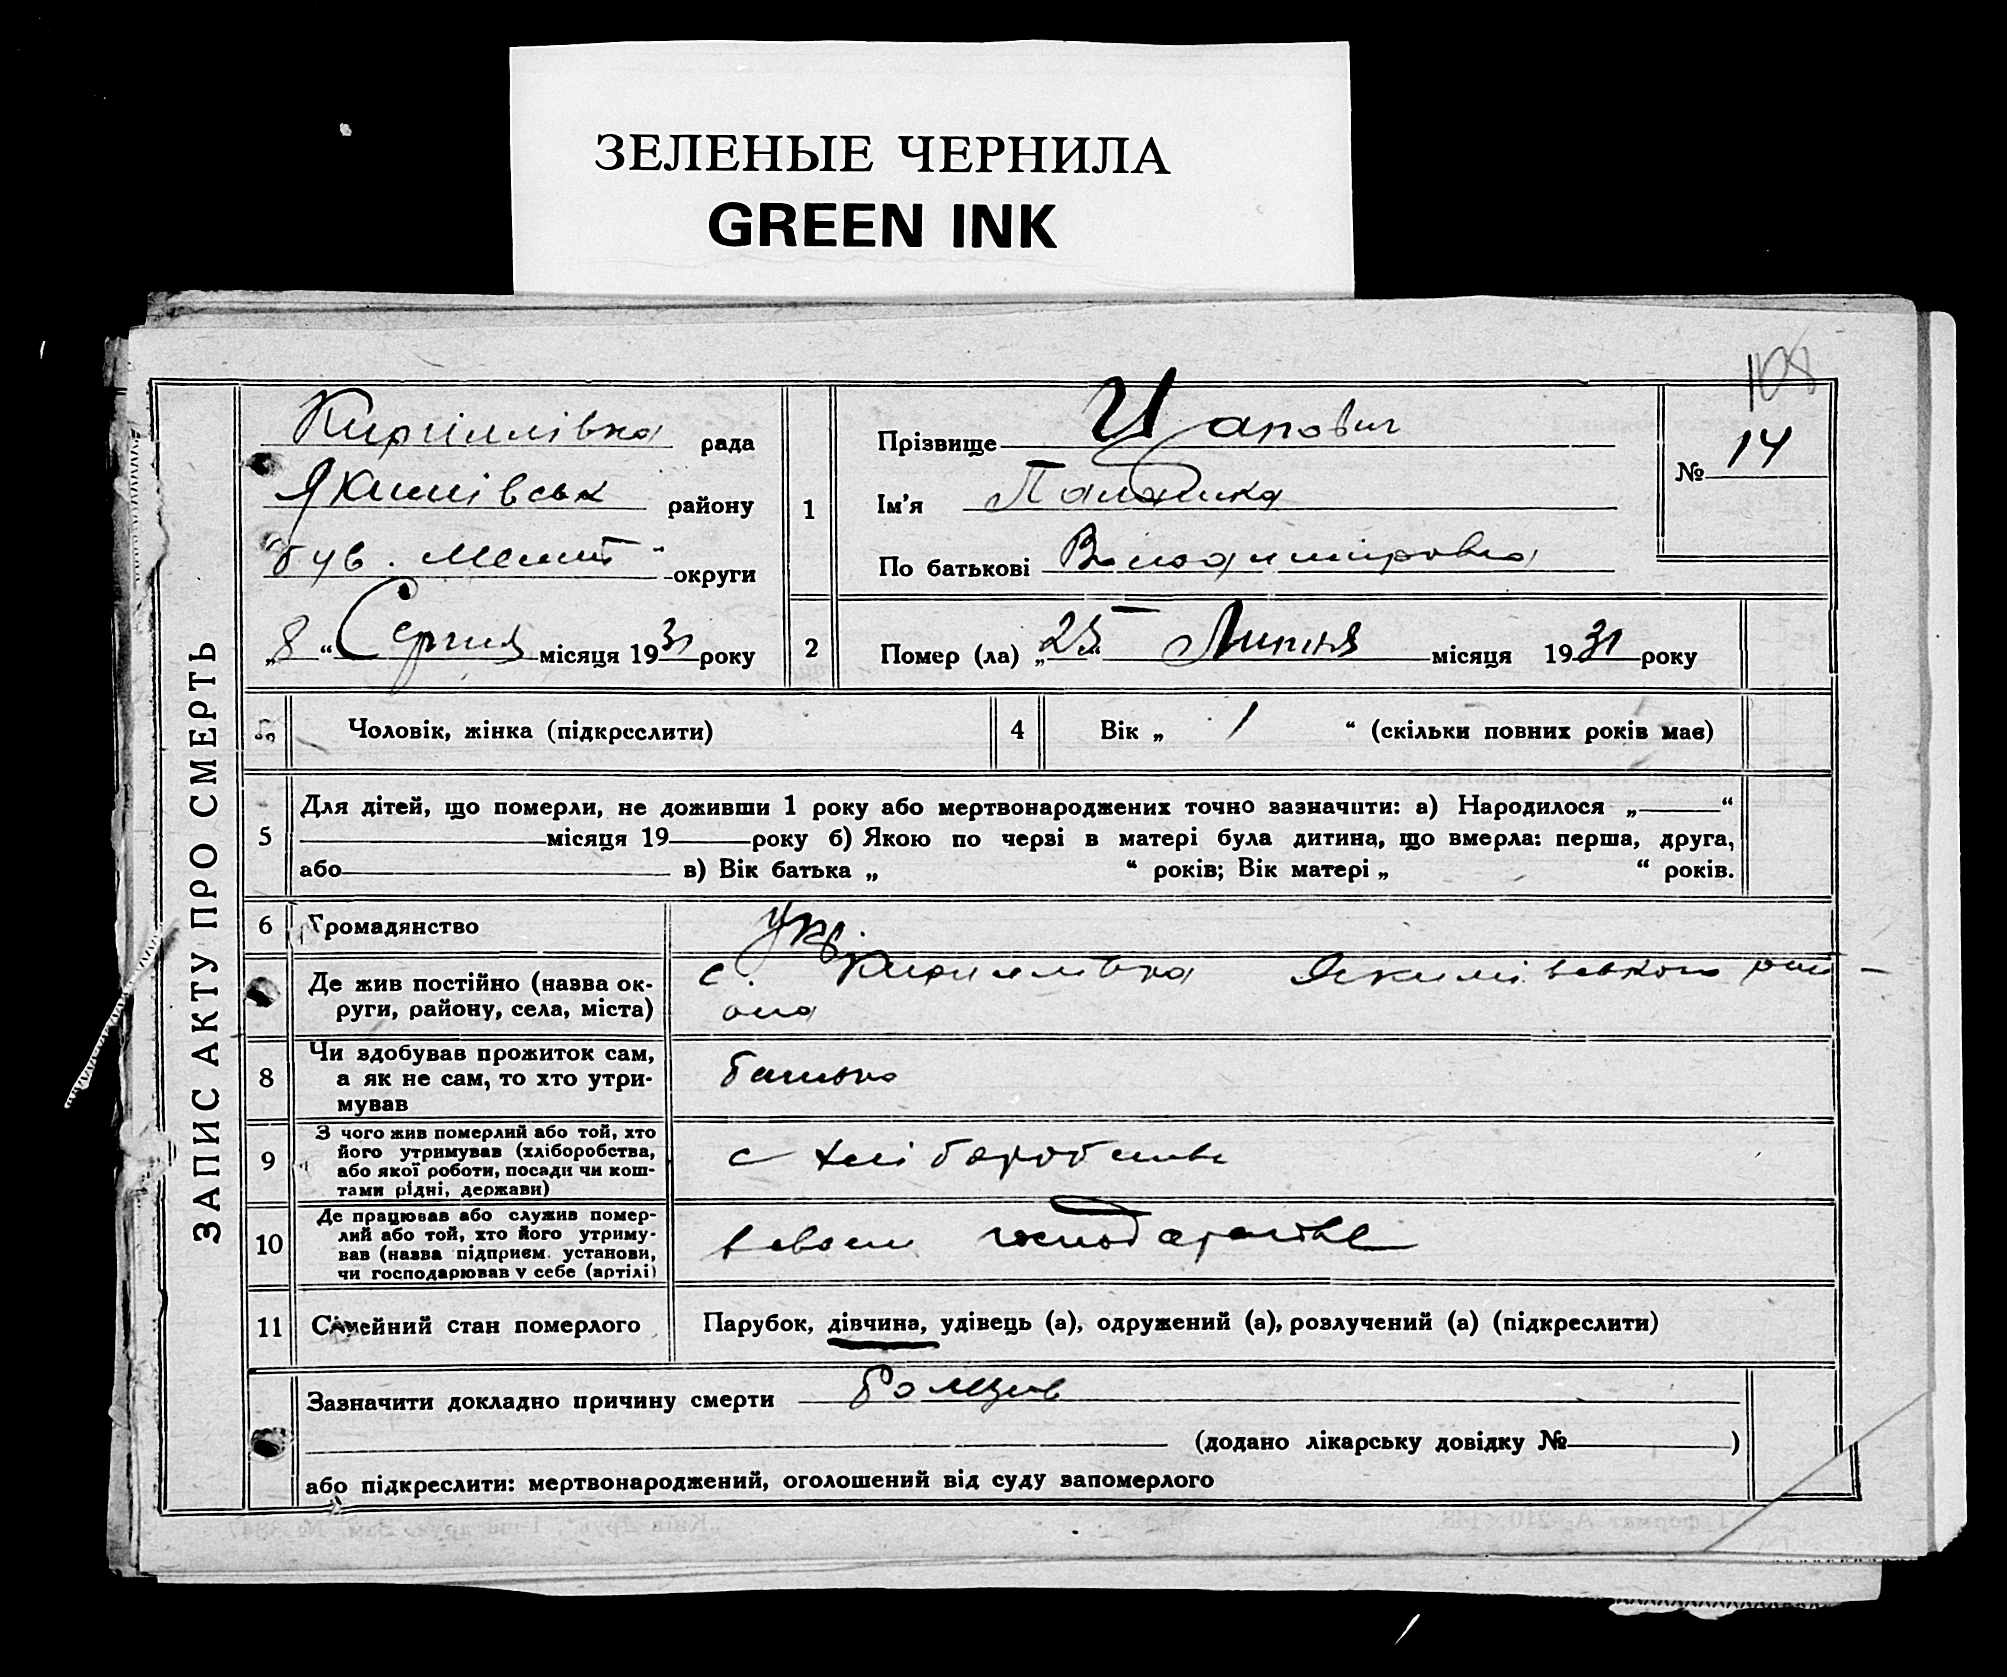 ЗЕЛЕНЫЕ ЧЕРНИЛА
GREEN INK
108
ЗАПИС АКТУ ПРО СМЕРТЬ
Кирилівка рада
Якимівськ району
"був. Мелит" округи
„8“ Серпня місяця 1931 року
1
Прізвище Цапович
Ім'я
По батькові Володимировна
№ 14
2
Помер (ла) „25“ Липня місяця 1931 року
3
Чоловік, жінка (підкреслити)
4
Вік „ 1 “ (скільки повних років має)
5
Для дітей, що померли, не доживши 1 року або мертвонароджених точно зазначити: а) Народилося „ “
місяця 19 року б) Якою по черзі в матері була дитина, що вмерла: перша, друга,
або в) Вік батька „ “ років; Вік матері „ “ років.
6
Громадянство
укр.
Де жив постійно (назва ок-
руги, району, села, міста)
с. Кирилівка Якимівського рай-
она
8
Чи здобував прожиток сам,
а як не сам, то хто утри-
мував
батько
9
З чого жив померлий або той, хто
його утримував (хліборобства,
або якої роботи, посади чи кош-
тами рідні, держави)
с хліборобства
10
Де працював або служив помер-
лий або той, хто його утриму-
вав (назва підприєм. установи,
чи господарював у себе (артілі)
в своем господарстве
11
Сімейний стан померлого
Парубок, дівчина, удівець (а), одружений (а), розлучений (а) (підкреслити)
Зазначити докладно причину смерти
(додано лікарську довідку № )
або підкреслити: мертвонароджений, оголошений від суду запомерлого